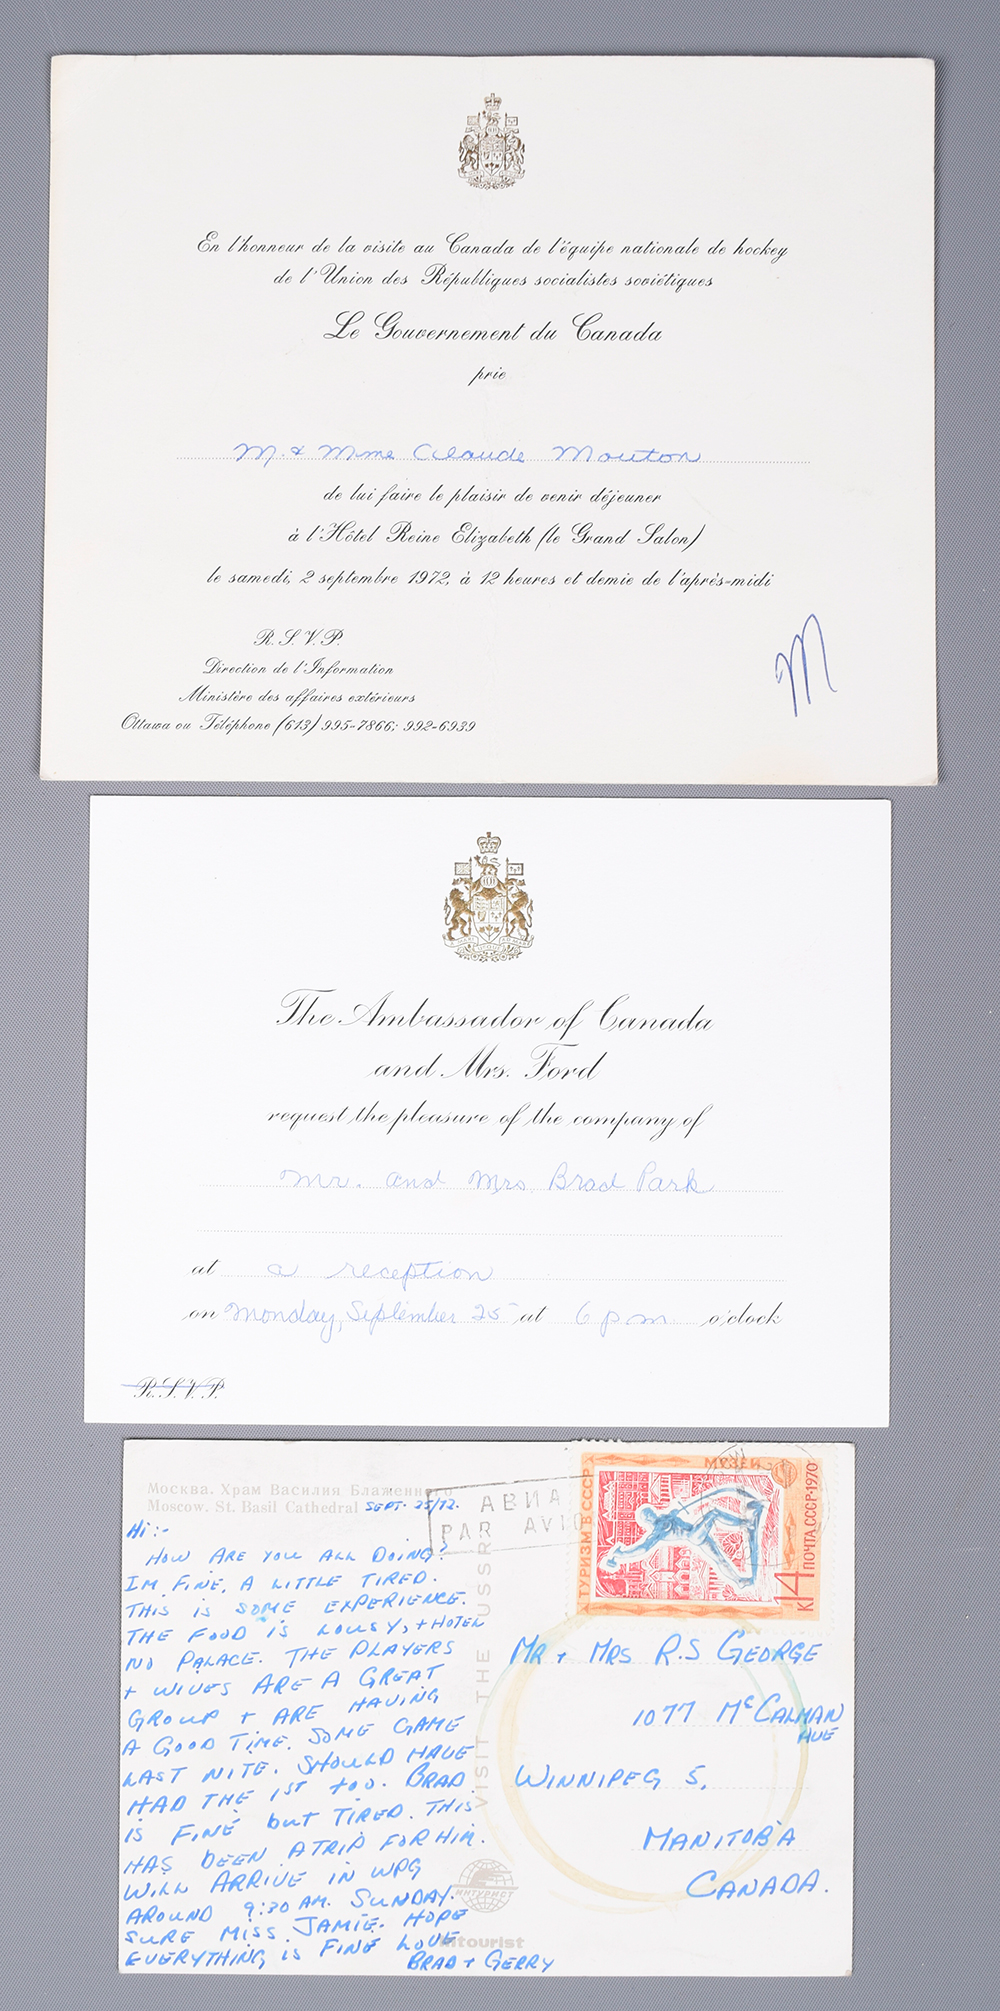 En l'honneur de la visite au Canada de l'équipe nationale de hockey
de l'Union des Républiques socialistes soviétiques
Le Gouvernement du Canada
prie
M. & Mme Claude Mouton
de lui faire le plaisir de venir déjeuner
à l'Hôtel Reine Elizabeth (le Grand Salon)
le samedi, 2 septembre 1972, à 12 heures et demie de l'après-midi
R.S.V.P.
Direction de l'Information
Ministère des affaires extérieurs
Ottawa ou Téléphone (613) 995-7866; 992-6939
M
The Ambassador of Canada
and Mrs. Ford
request the pleasure of the company of
Mr. and Mrs. Brad Park
at a reception
on Monday, September 25 at 6 p.m. o'clock
R.S.V.P.
Москва. Храм Василия Блаженного
Moscow. St. Basil Cathedral SEPT. 25/72.
HI:-
HOW ARE YOU ALL DOING?
IM FINE, A LITTLE TIRED.
THIS IS SOME EXPERIENCE.
THE FOOD IS LOUSY, + HOTEL
NO PALACE. THE PLAYERS
+ WIVES ARE A GREAT
GROUP + ARE HAVING
A GOOD TIME. SOME GAME
LAST NITE. SHOULD HAVE
HAD THE 1ST TOO. BRAD
IS FINE but TIRED. THIS
HAS BEEN A TRIP FOR HIM.
WILL ARRIVE IN WPG
AROUND 9:30 AM. SUNDAY.
SURE MISS JAMIE. HOPE
EVERYTHING IS FINE LOVE
BRAD + GERRY
АВИА
PAR AVI
VISIT THE USSR
ТУРИЗМ В СССР
МУЗЕИ
ПОЧТА СССР·1970
К14
MR + MRS R.S GEORGE
1077 McCALMAN
AVE
WINNIPEG 5,
MANITOBA
CANADA.
ИНТУРИСТ
Intourist